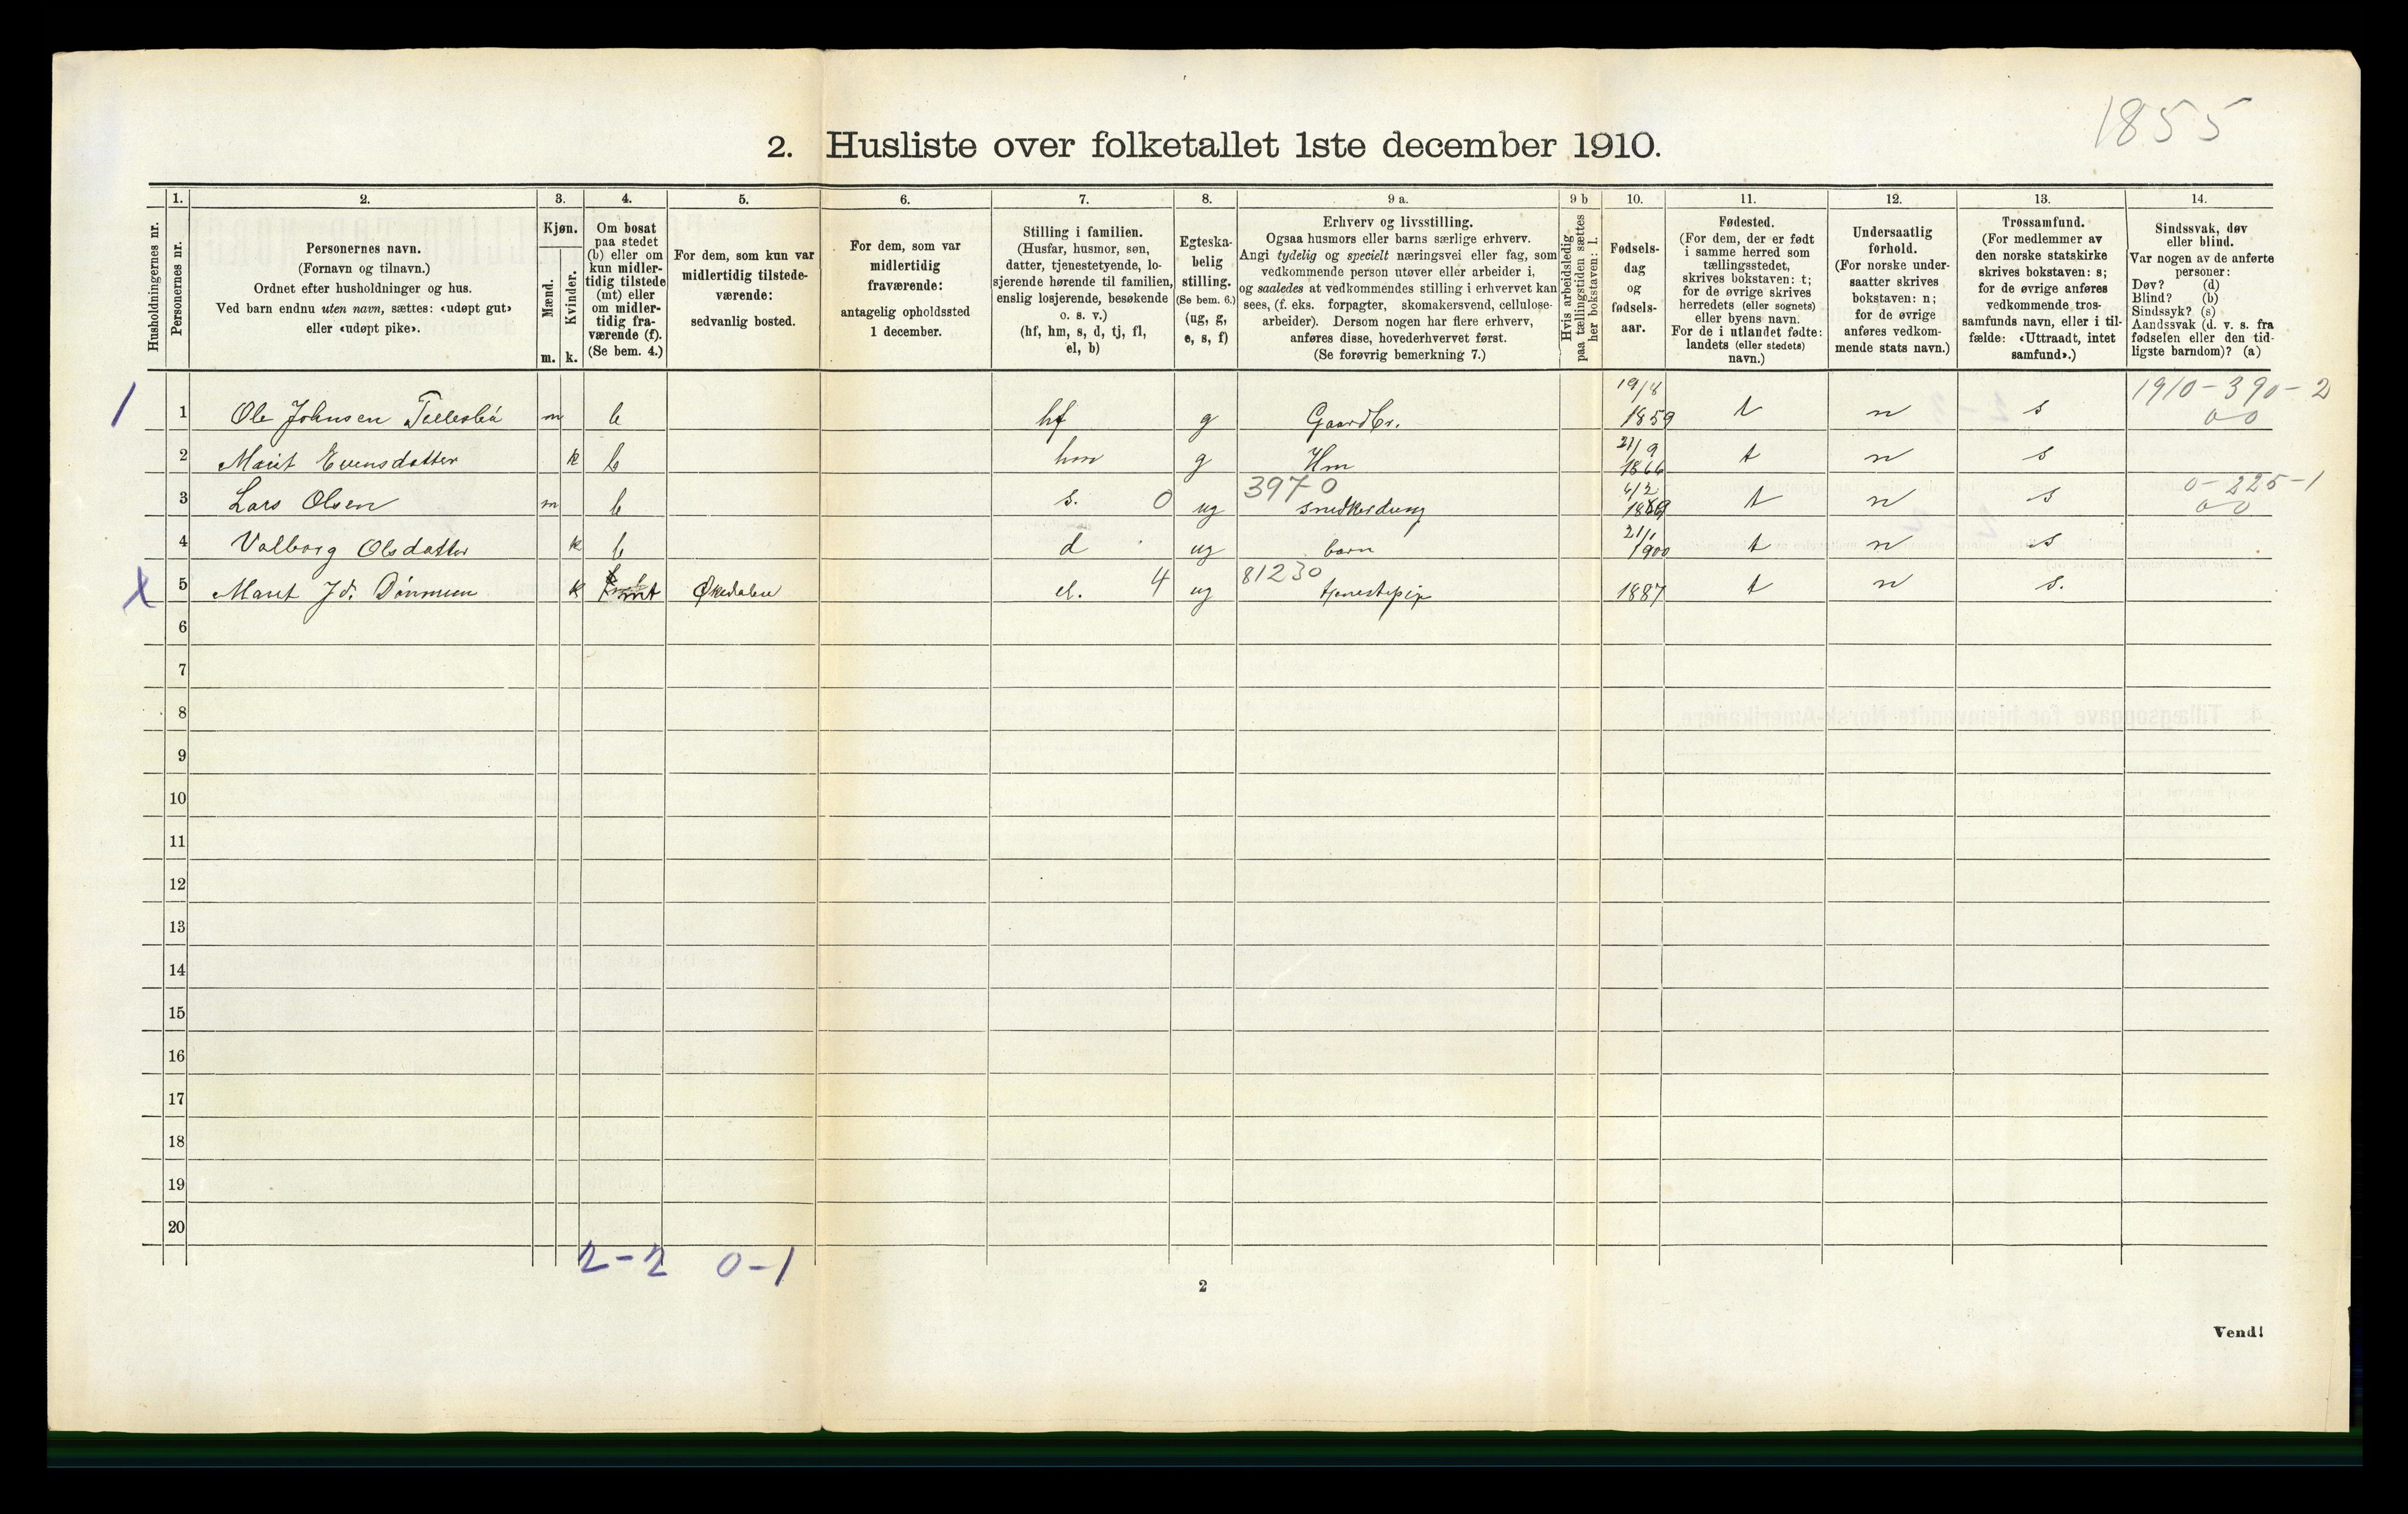 1855
2. Husliste over folketallet 1ste december 1910.
Husholdningernes nr.
1.
Personernes nr.
2.
Personernes navn.
(Fornavn og tilnavn.)
Ordnet efter husholdninger og hus.
Ved barn endnu uten navn, sættes: «udøpt gut»
eller «udøpt pike».
3.
Kjøn.
Mænd.
Kvinder.
m. k.
4.
Om bosat
paa stedet
(b) eller om
kun midler-
tidig tilstede
(mt) eller
om midler-
tidig fra-
værende (f).
(Se bem. 4.)
5.
For dem, som kun var
midlertidig tilstede-
værende:
sedvanlig bosted.
6.
For dem, som var
midlertidig
fraværende:
antagelig opholdssted
1 december.
7.
Stilling i familien.
(Husfar, husmor, søn,
datter, tjenestetyende, lo-
sjerende hørende til familien,
enslig losjerende, besøkende
o. s. v.)
(hf, hm, s, d, tj, fl,
el, b)
8.
Egteska-
belig
stilling.
(Se bem. 6.)
(ug, g,
e, s, f)
9 a.
Erhverv og livsstilling.
Ogsaa husmors eller barns særlige erhverv.
Angi tydelig og specielt næringsvei eller fag, som
vedkommende person utøver eller arbeider i,
og saaledes at vedkommendes stilling i erhvervet kan
sees, (f. eks. forpagter, skomakersvend, cellulose-
arbeider). Dersom nogen har flere erhverv,
anføres disse, hovederhvervet først.
(Se forøvrig bemerkning 7.)
9 b
Hvis arbeidsledig
paa tællingstiden sættes
her bokstaven: l.
10.
Fødsels-
dag
og
fødsels-
aar.
11.
Fødested.
(For dem, der er født
i samme herred som
tællingsstedet,
skrives bokstaven: t;
for de øvrige skrives
herredets (eller sognets)
eller byens navn.
For de i utlandet fødte:
landets (eller stedets)
navn.)
12.
Undersaatlig
forhold.
(For norske under-
saatter skrives
bokstaven: n;
for de øvrige
anføres vedkom-
mende stats navn.)
13.
Trossamfund.
(For medlemmer av
den norske statskirke
skrives bokstaven: s;
for de øvrige anføres
vedkommende tros-
samfunds navn, eller i til-
fælde: «Uttraadt, intet
samfund».)
14.
Sindssvak, døv
eller blind.
Var nogen av de anførte
personer:
Døv? (d)
Blind? (b)
Sindssyk? (s)
Aandssvak (d. v. s. fra
fødselen eller den tid-
ligste barndom)? (a)
1 1 Ole Johnsen m b hf g Gaardbr. 19/8 1859 t n s 1910-390-2 0 0
2 Marit Evensdatter k b hm g Hm 21/9 1866 t n s
3 Lars Olsen m b s. 0 ug 3970 t n s 0-225-1 0 0
4 Valborg Olsdatter k b d ug barn 21/1 1900 t n s
x 5 Marit Jd. k mt el. 4 ug 81230 1887 t n s.
6
7
8
9
10
11
12
13
14
15
16
17
18
19
20
2-2 0-1
2
Vend!